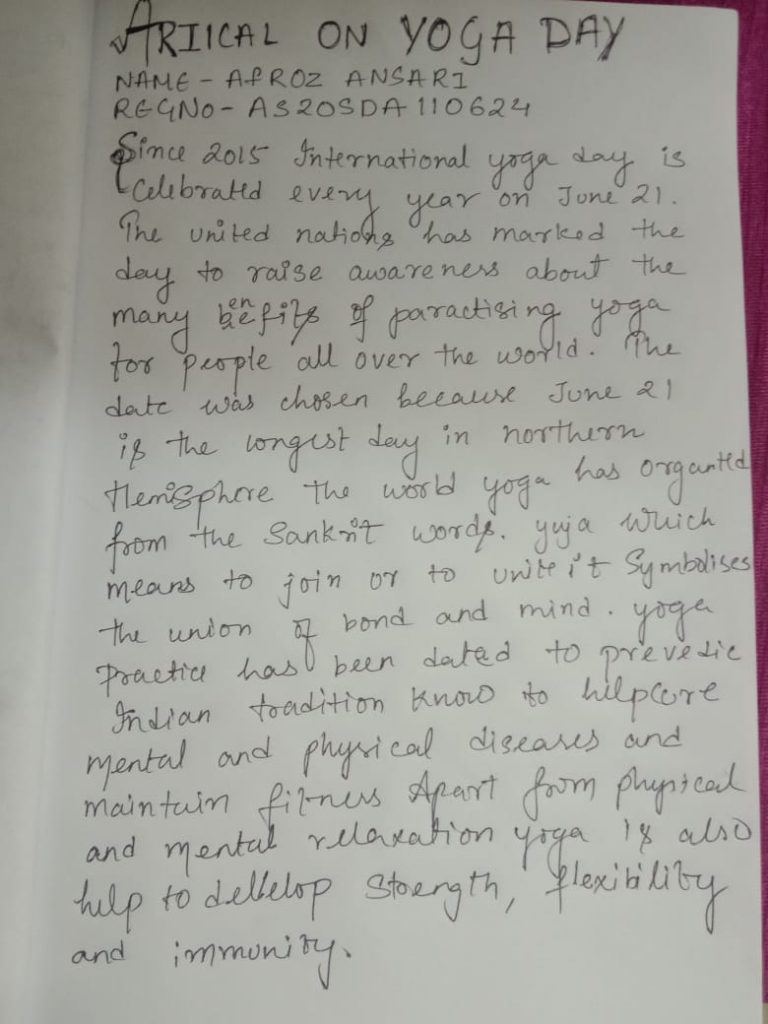 ARIICAL ON YOGA DAY
NAME - AFROZ ANSARI
REGNO - AS20SDA110624
Since 2015 International yoga day is
Celebrated every year on June 21.
The united nations has marked the
day to raise awareness about the
many benefits of paractising yoga
for people all over the world. The
date was chosen because June 21
is the longest day in northern
Hemisphere The world yoga has organted
from the Sanknit words. yuja which
means to join or to unite it Symbolises
the union of bond and mind. yoga
Practice has been dated to prevedic
Indian tradition know to helpcore
mental and physical diseases and
maintain fitness Apart from physical
and mental relaxation yoga is also
help to dellelop Strength, flexibility
and immunity.